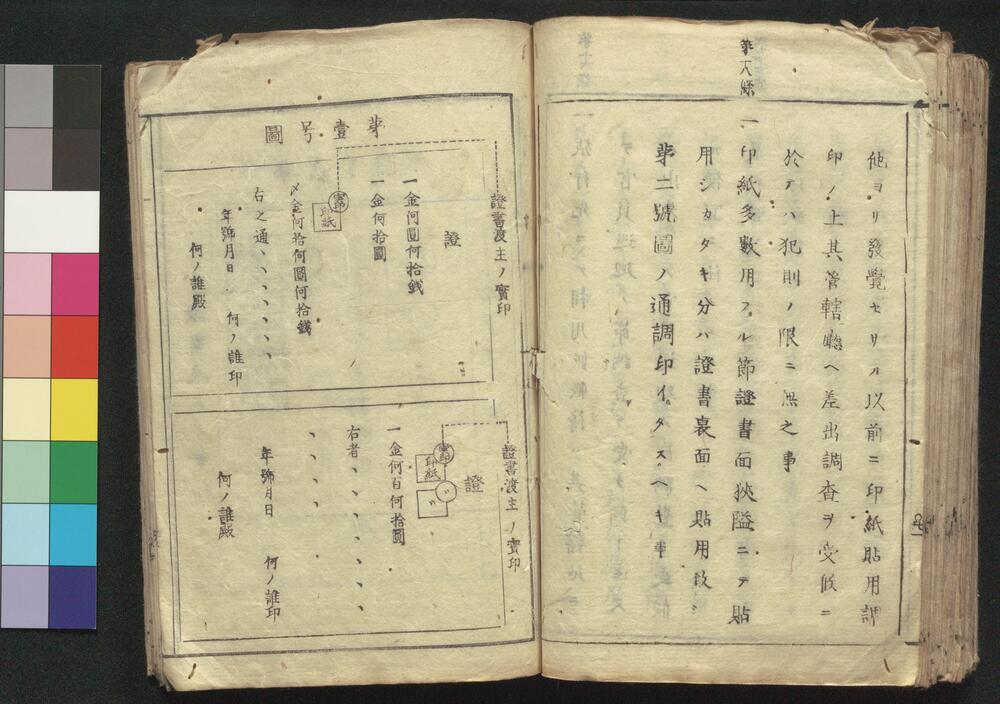 他ヨリ發覺セサル以前ニ印紙貼用調
印ノ上其管轄廳ヘ差出調査ヲ受候ニ
於テハ犯則ノ限ニ無之事
第六條
一印紙多數用フル節證書面狹隘ニテ貼
用シカタキ分ハ證書裏面ヘ貼用致
第二號圖ノ通調印イタスヘキ事
第壹号圖
證書渡主ノ實印
證
一金何圓何拾錢
一金何拾圓
實印
印紙
〆金何拾何圓何拾錢
右之通、、、、、、
年號月日 何ノ誰印
何ノ誰殿
證書渡主ノ實印
證
實印
印紙
一金何百何拾圓
右者、、、、、、
、、、、
年號月日 何ノ誰印
何ノ誰殿